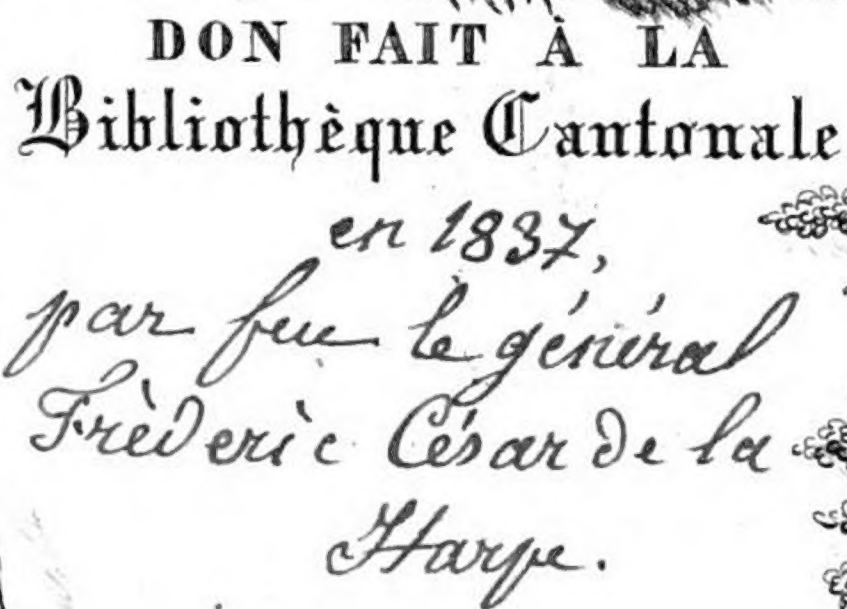 DON FAIT À LA
Bibliothèque Cantonale
en 1837,
par feu le général
Frèderic César de la
Harpe.